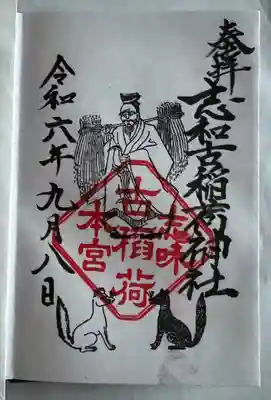 奉拝
志和古稲荷神社
古稲荷
本宮
令和六年九月八日